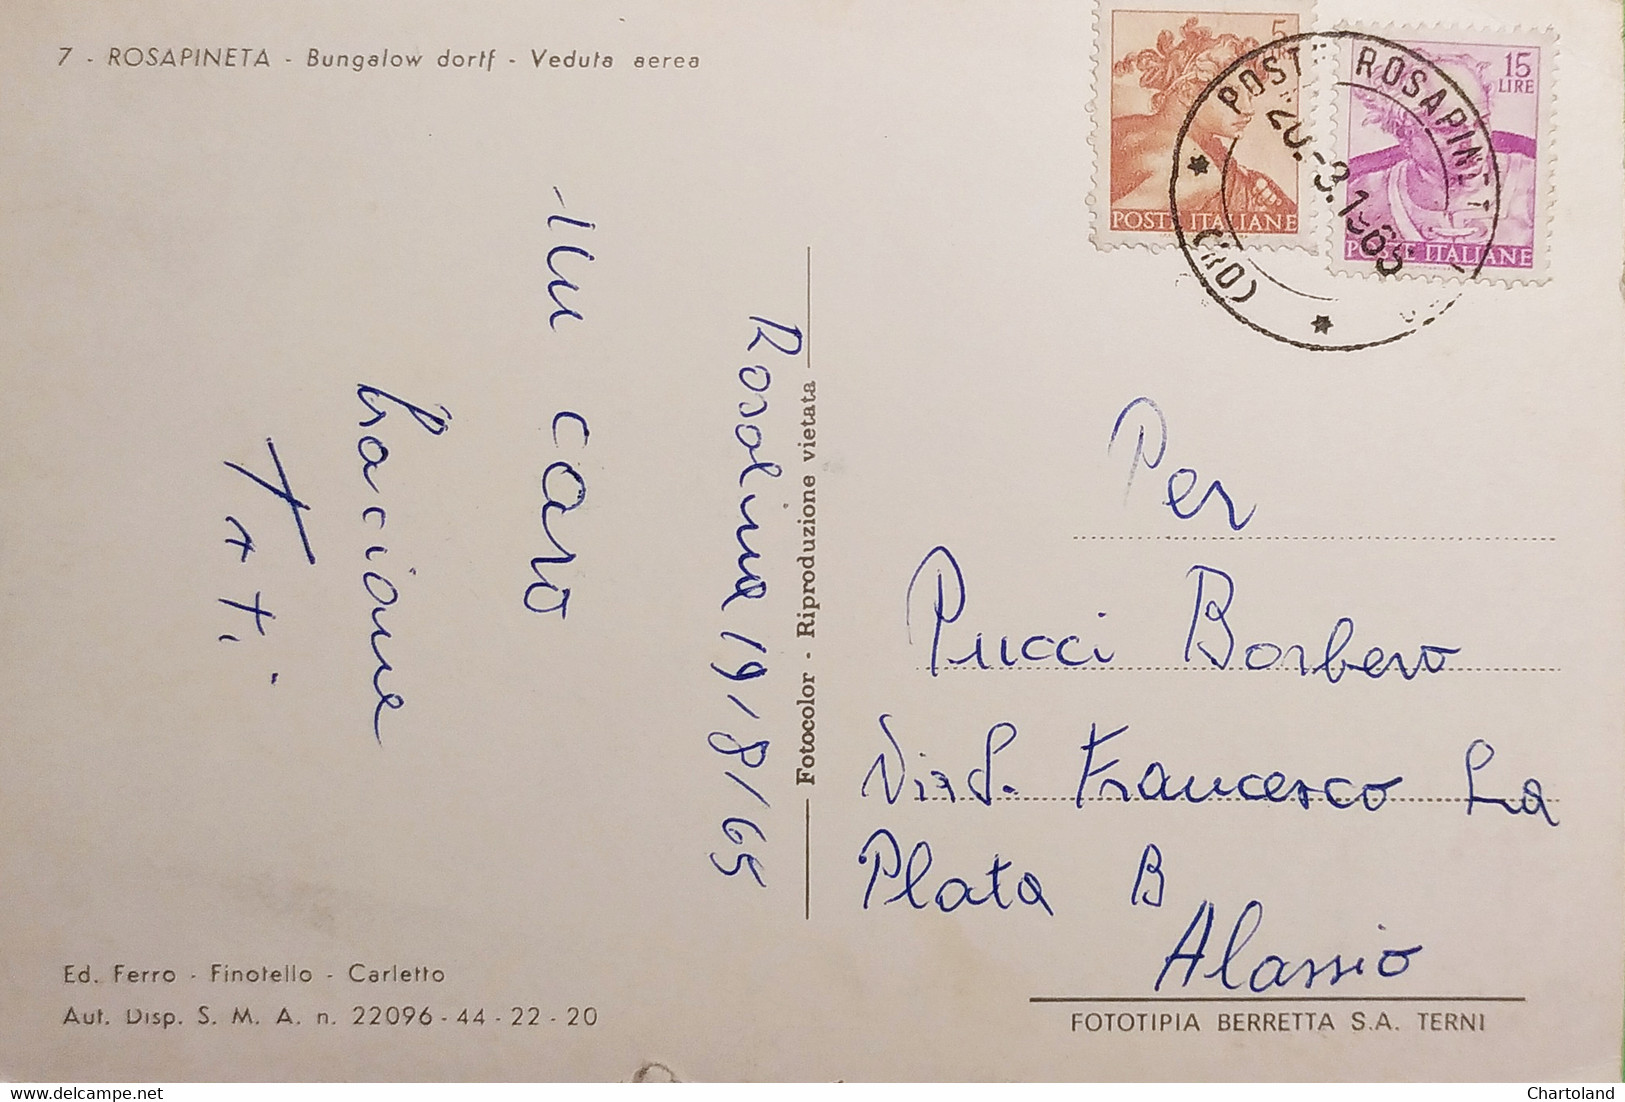 7 - ROSAPINETA - Bungalow dorff - Veduta aerea
Rosolina 19/8/65
un caro
bacione
Tati
Fotocolor - Riproduzione vietata
5
15
LIRE
POSTE ITALIANE
POSTE ITALIANE
POSTE ROSAPINETA
(RO)
Per
Pucci Borbero
Via S. Francesco La
Plata B
Alassio
Ed. Ferro - Finotello - Carletto
Aut. Disp. S. M. A. n. 22096 - 44 - 22 - 20
FOTOTIPIA BERRETTA S.A. TERNI
Chartoland